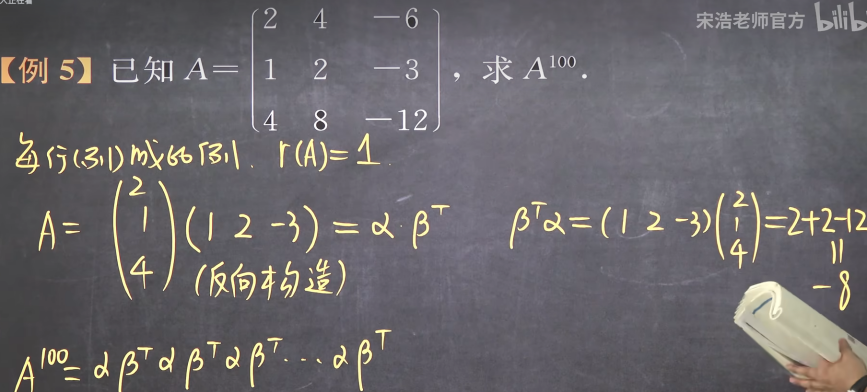 人正在看
宋浩老师官方 bilib
【例 5】已知 A= (2 4 −6; 1 2 −3; 4 8 −12), 求 A¹⁰⁰.
每行(列)成比例. r(A)=1.
A= (2; 1; 4) (1 2 -3) = α·βᵀ βᵀα = (1 2 -3) (2; 1; 4) = 2+2-12
(反向构造) = -8
A¹⁰⁰= αβᵀαβᵀαβᵀ⋯αβᵀ